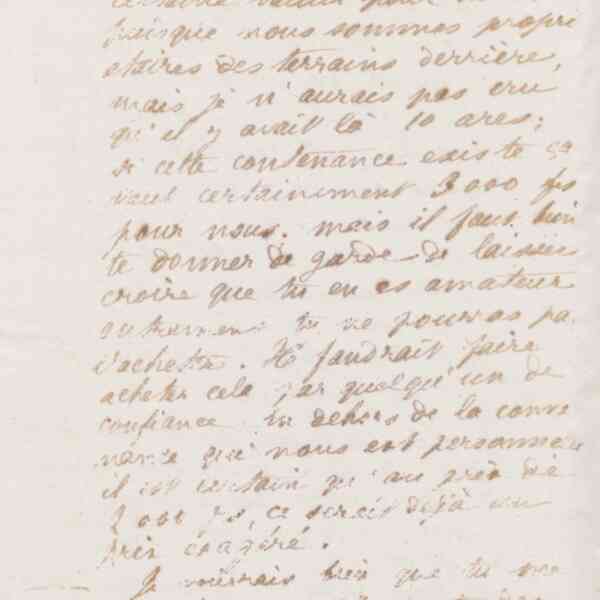 puisque nous sommes propri
etaires des terrains derrière,
mais je n'aurais pas cru
qu'il y avait là 10 ares;
si cette contenance existe ça
vaut certainement 3000 frs
pour nous. mais il faut bien
te donner de garde de laisser
croire que tu en es amateur
autrement tu ne pourras pa
l'acheter. Il faudrait faire
acheter cela par quelqu'un de
confiance en dehors de la conve
nance que nous est personnelle
il est certain qu'au prix de
3000 frs ce serait déjà un
prix exagéré.
Je voudrais bien que tu me